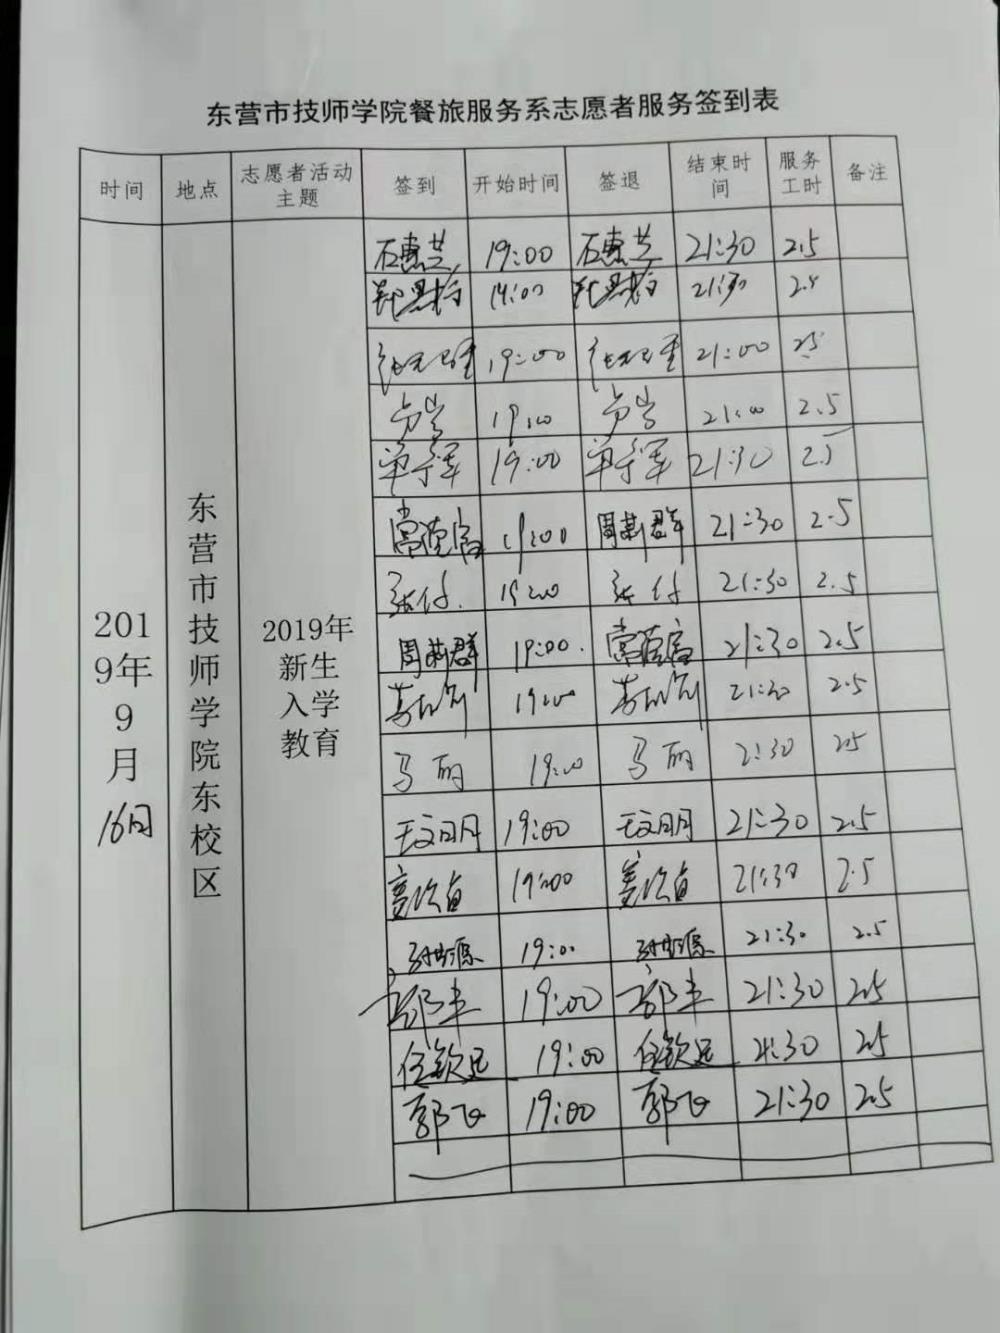 东营市技师学院餐旅服务系志愿者服务签到表
时间 地点 志愿者活动主题 签到 开始时间 签退 结束时间 服务工时 备注
2019年9月16日 东营市技师学院东校区 2019年新生入学教育
石惠芝 19:00 石惠芝 21:30 2.5
21:30 2.5
19:00 21:00 2.5
19:00 21:00 2.5
单宁军 19:00 单宁军 21:30 2.5
19:00 周莉群 21:30 2.5
张付 19:00 张付 21:30 2.5
周莉群 19:00 21:30 2.5
19:00 21:30 2.5
马丽 19:00 马丽 21:30 2.5
王文明 19:00 王文明 21:30 2.5
19:00 21:30 2.5
19:00 21:30 2.5
19:00 21:30 2.5
任钦远 19:00 任钦远 21:30 2.5
郭飞 19:00 郭飞 21:30 2.5